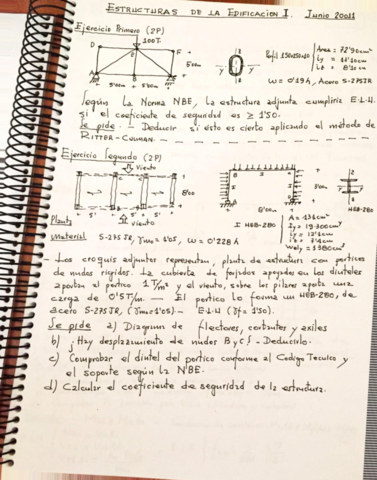 ESTRUCTURAS DE LA EDIFICACION I. Junio
Ejercicio Primero (2P)
100T
D
E
F
3'00
A
B
5'00m
5'00m
Y Y
Perfil
Area =
iy =
W = 0'19λ, Acero S-275JR
Según la Norma NBE, la estructura adjunta cumpliria E.L.U.
si el coeficiente de seguridad es ≥ 1'50.
Se pide - Deducir si esto es cierto aplicando el método de
RITTER-CULMAN.
Ejercicio Segundo (2P)
Viento
8'00
5' 5' 5'
Planta
viento
8'00m
3'00m
HEB-280
I HEB-280
A = 131cm²
Iy = 19.300cm⁴
iy = 12'1cm
Material S-275 JR, γm = 1'05, W = 0'228 λ
- Los croquis adjuntos representan, planta de estructura con porticos
de nudos rígidos. La cubierta de forjados apoyados en los dinteles
aportan al portico 1 T/m² y el viento, sobre los pilares aporta una
carga de 0'5T/m. — El portico lo forma un HEB-280, de
acero S-275JR, (γm=1'05) - E.L.U (γf = 1'50).
Se pide a) Diagrama de flectores, cortantes y axiles
b) ¿Hay desplazamiento de nudos B y C? - Deducirlo.
c) Comprobar el dintel del portico conforme al Codigo Tecnico y
el soporte según la NBE.
d) Calcular el coeficiente de seguridad de la estructura.